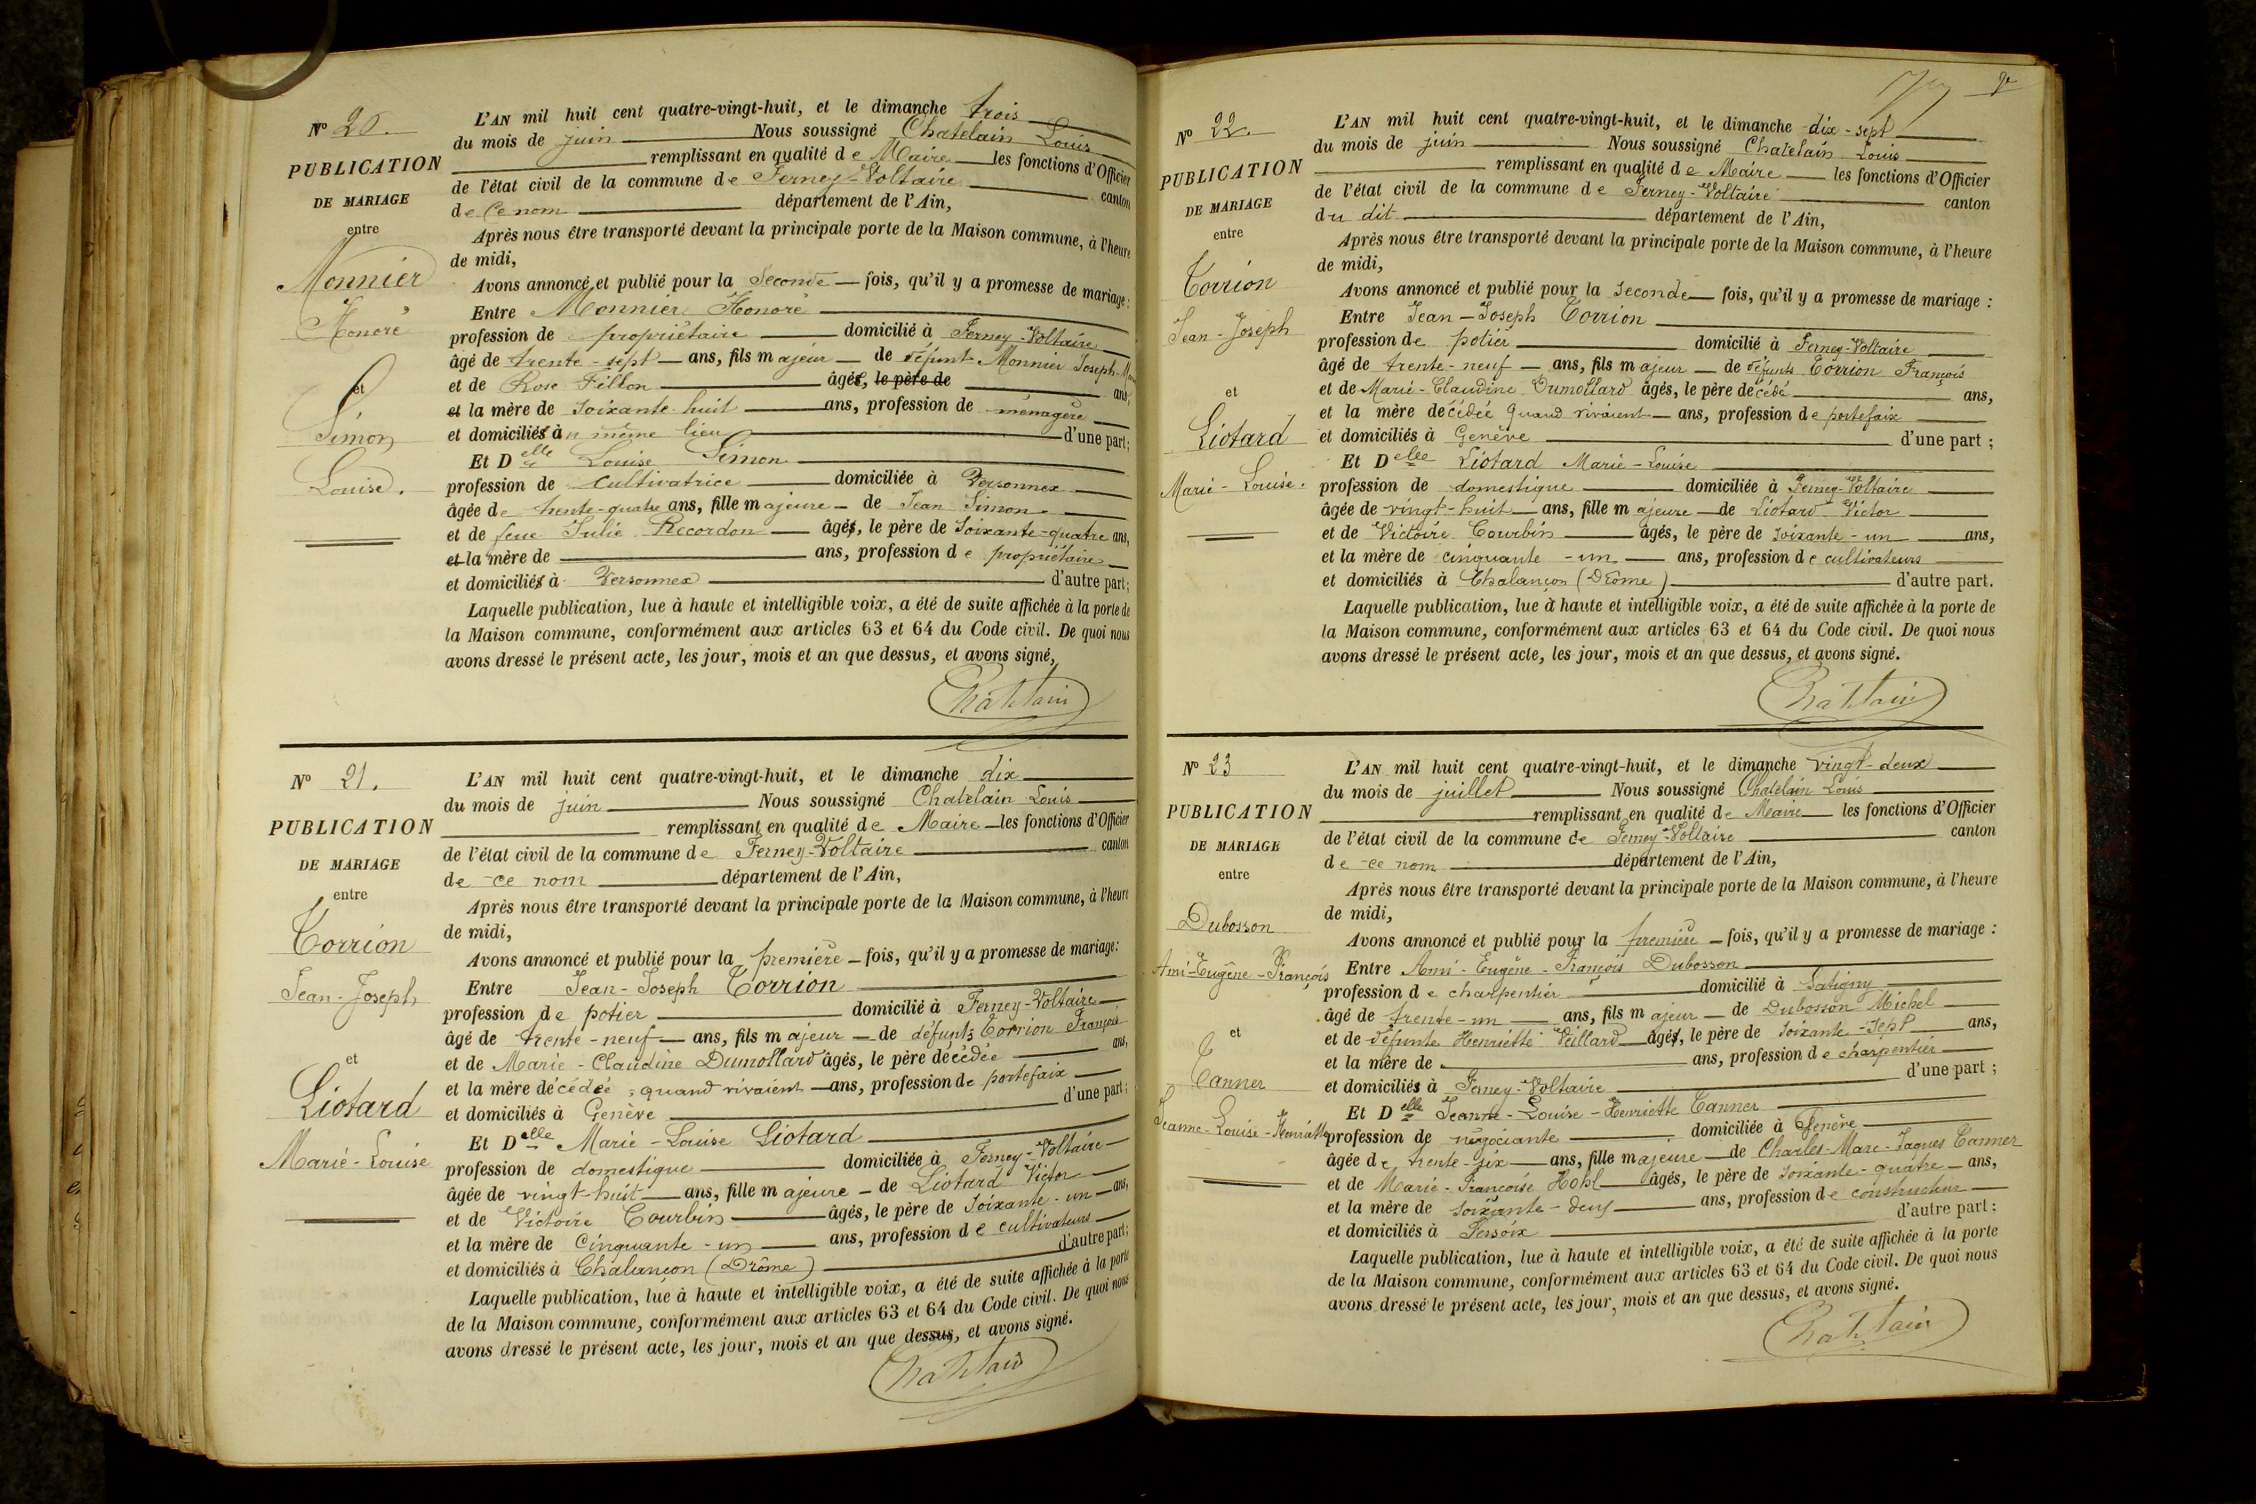 N° 20.
PUBLICATION
DE MARIAGE
entre
Monnier
Honoré
et
Simon
Louise.
L'AN mil huit cent quatre-vingt-huit, et le dimanche trois
du mois de juin Nous soussigné Chatelain Louis
remplissant en qualité de Maire les fonctions d'Officier
de l'état civil de la commune de Ferney-Voltaire canton
de ce nom département de l'Ain,
Après nous être transporté devant la principale porte de la Maison commune, à l'heure
de midi,
Avons annoncé et publié pour la Seconde fois, qu'il y a promesse de mariage :
Entre Monnier Honoré
profession de propriétaire domicilié à Ferney-Voltaire
âgé de trente-sept ans, fils majeur de défunt Monnier Joseph
et de Rose Fillon âgés, le père de ans,
et la mère de soixante huit ans, profession de ménagère
et domiciliés à même lieu d'une part ;
Et Delle Louise Simon
profession de cultivatrice domiciliée à Versonnex
âgée de trente-quatre ans, fille majeure de Jean Simon
et de feue Julie Recordon âgés, le père de soixante-quatre ans,
et la mère de ans, profession de propriétaire
et domiciliés à Versonnex d'autre part ;
Laquelle publication, lue à haute et intelligible voix, a été de suite affichée à la porte de
la Maison commune, conformément aux articles 63 et 64 du Code civil. De quoi nous
avons dressé le présent acte, les jour, mois et an que dessus, et avons signé,
Chatelain
N° 21.
PUBLICATION
DE MARIAGE
entre
Corrion
Jean-Joseph
et
Liotard
Marie-Louise
L'AN mil huit cent quatre-vingt-huit, et le dimanche dix
du mois de juin Nous soussigné Chatelain Louis
remplissant en qualité de Maire les fonctions d'Officier
de l'état civil de la commune de Ferney-Voltaire canton
de ce nom département de l'Ain,
Après nous être transporté devant la principale porte de la Maison commune, à l'heure
de midi,
Avons annoncé et publié pour la première fois, qu'il y a promesse de mariage :
Entre Jean-Joseph Corrion
profession de potier domicilié à Ferney-Voltaire
âgé de trente-neuf ans, fils majeur de défunts Corrion François
et de Marie-Claudine Dumollard âgés, le père décédée ans,
et la mère décédée, quand vivaient ans, profession de portefaix
et domiciliés à Genève d'une part ;
Et Delle Marie-Louise Liotard
profession de domestique domiciliée à Ferney-Voltaire
âgée de vingt-huit ans, fille majeure de Liotard Victor
et de Victoire Courbin âgés, le père de soixante-un ans,
et la mère de cinquante-un ans, profession de cultivateurs
et domiciliés à Chalancon (Drôme) d'autre part ;
Laquelle publication, lue à haute et intelligible voix, a été de suite affichée à la porte
de la Maison commune, conformément aux articles 63 et 64 du Code civil. De quoi nous
avons dressé le présent acte, les jour, mois et an que dessus, et avons signé.
Chatelain
N° 22.
PUBLICATION
DE MARIAGE
entre
Corrion
Jean-Joseph
et
Liotard
Marie-Louise.
L'AN mil huit cent quatre-vingt-huit, et le dimanche dix-sept
du mois de juin Nous soussigné Chatelain Louis
remplissant en qualité de Maire les fonctions d'Officier
de l'état civil de la commune de Ferney-Voltaire canton
du dit département de l'Ain,
Après nous être transporté devant la principale porte de la Maison commune, à l'heure
de midi,
Avons annoncé et publié pour la seconde fois, qu'il y a promesse de mariage :
Entre Jean-Joseph Corrion
profession de potier domicilié à Ferney-Voltaire
âgé de trente-neuf ans, fils majeur de défunts Corrion François
et de Marie-Claudine Dumollard âgés, le père décédé ans,
et la mère décédée quand vivaient ans, profession de portefaix
et domiciliés à Genève d'une part ;
Et Delle Liotard Marie-Louise
profession de domestique domiciliée à Ferney-Voltaire
âgée de vingt-huit ans, fille majeure de Liotard Victor
et de Victoire Courbin âgés, le père de soixante-un ans,
et la mère de cinquante-un ans, profession de cultivateurs
et domiciliés à Chalançon (Drôme) d'autre part.
Laquelle publication, lue à haute et intelligible voix, a été de suite affichée à la porte de
la Maison commune, conformément aux articles 63 et 64 du Code civil. De quoi nous
avons dressé le présent acte, les jour, mois et an que dessus, et avons signé.
Chatelain
N° 23
PUBLICATION
DE MARIAGE
entre
Dubosson
Ami-Eugène-François
et
Tanner
Jeanne-Louise-Henriette
L'AN mil huit cent quatre-vingt-huit, et le dimanche vingt-deux
du mois de juillet Nous soussigné Chatelain Louis
remplissant en qualité de Maire les fonctions d'Officier
de l'état civil de la commune de Ferney-Voltaire canton
de ce nom département de l'Ain,
Après nous être transporté devant la principale porte de la Maison commune, à l'heure
de midi,
Avons annoncé et publié pour la première fois, qu'il y a promesse de mariage :
Entre Ami-Eugène-François Dubosson
profession de charpentier domicilié à Satigny
âgé de trente-un ans, fils majeur de Dubosson Michel
et de défunte Henriette Veillard âgés, le père de soixante-sept ans,
et la mère de ans, profession de charpentier
et domiciliés à Ferney-Voltaire d'une part ;
Et Delle Jeanne-Louise-Henriette Tanner
profession de négociante domiciliée à Genève
âgée de trente-six ans, fille majeure de Charles-Marc-Jaques Tanner
et de Marie-Françoise Hohl âgés, le père de soixante-quatre ans,
et la mère de soixante-deux ans, profession de constructeur
et domiciliés à Versoix d'autre part ;
Laquelle publication, lue à haute et intelligible voix, a été de suite affichée à la porte
de la Maison commune, conformément aux articles 63 et 64 du Code civil. De quoi nous
avons dressé le présent acte, les jour, mois et an que dessus, et avons signé.
Chatelain